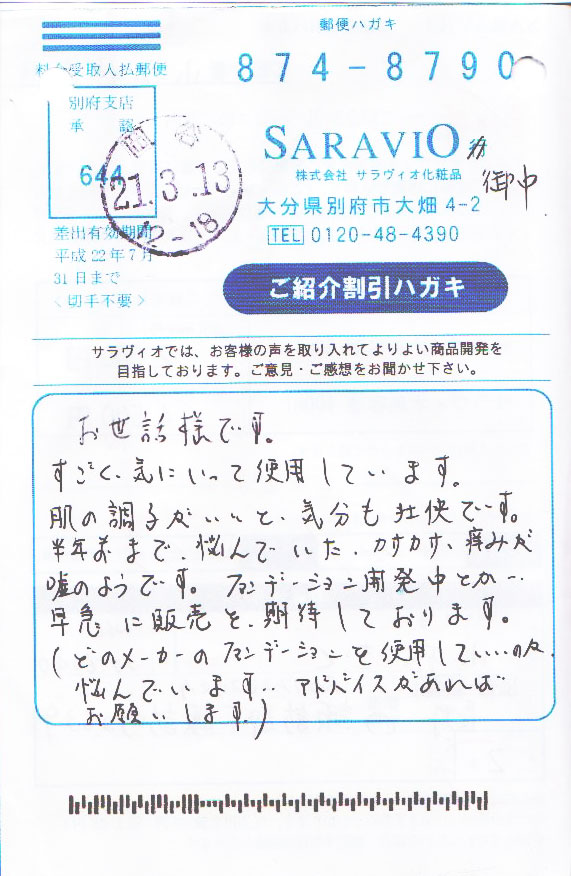 郵便ハガキ
料金受取人払郵便
874-8790
別府支店
承認
644
21.3.13
12-18
SARAVIO 行
御中
株式会社 サラヴィオ化粧品
大分県別府市大畑 4-2
TEL 0120-48-4390
差出有効期間
平成22年7月
31日まで
〈切手不要〉
ご紹介割引ハガキ
サラヴィオでは、お客様の声を取り入れてよりよい商品開発を
目指しております。ご意見・ご感想をお聞かせ下さい。
お世話様です。
すごく、気にいって使用しています。
肌の調子がいいと、気分も壮快です。
半年前まで、悩んでいた、カサカサ、痒みが
嘘のようです。ファンデーション開発中とか…
早急に販売を、期待しております。
(どのメーカーのファンデーションを使用していいのか、
悩んでいます‥アドバイスがあれば
お願いします。)